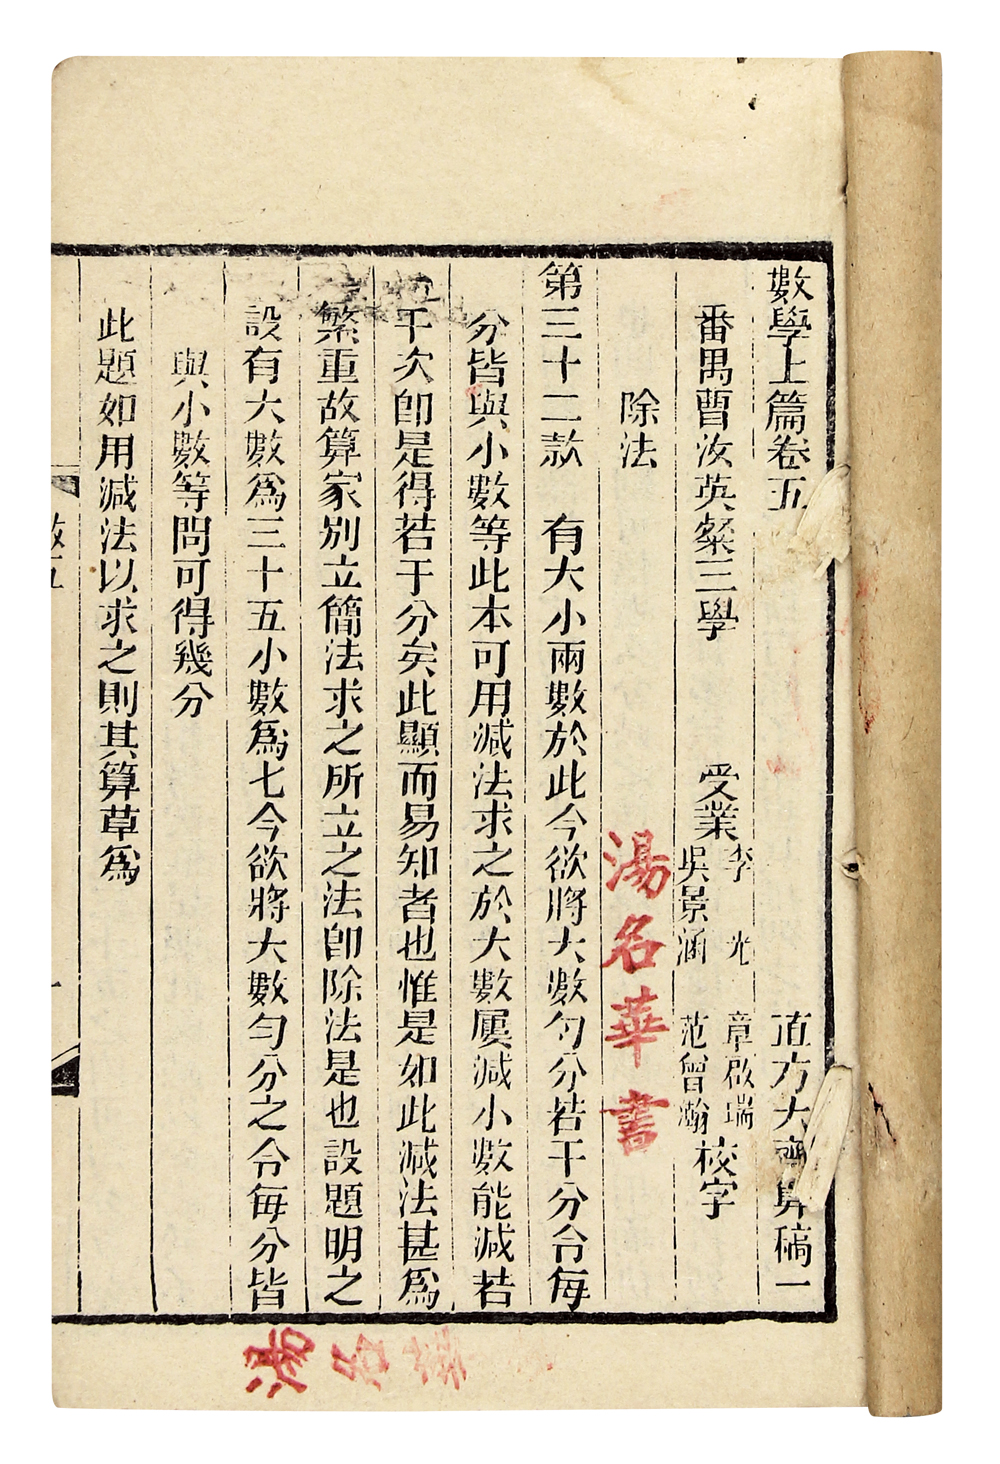 數學上篇卷五 直方大齋算稿一
番禺曹汝英粲三學 受業 李光 吳景涵 章啟瑞 范曾瀚 校字
除法
湯名華書
第三十二款 有大小兩數於此今欲將大數勻分若干分令每
分皆與小數等此本可用減法求之於大數屢減小數能減若
干次卽是得若干分矣此顯而易知者也惟是如此減法甚爲
繁重故算家別立簡法求之所立之法卽除法是也設題明之
設有大數爲三十五小數爲七今欲將大數勻分之令每分皆
與小數等問可得幾分
此題如用減法以求之則其算草爲
湯名華